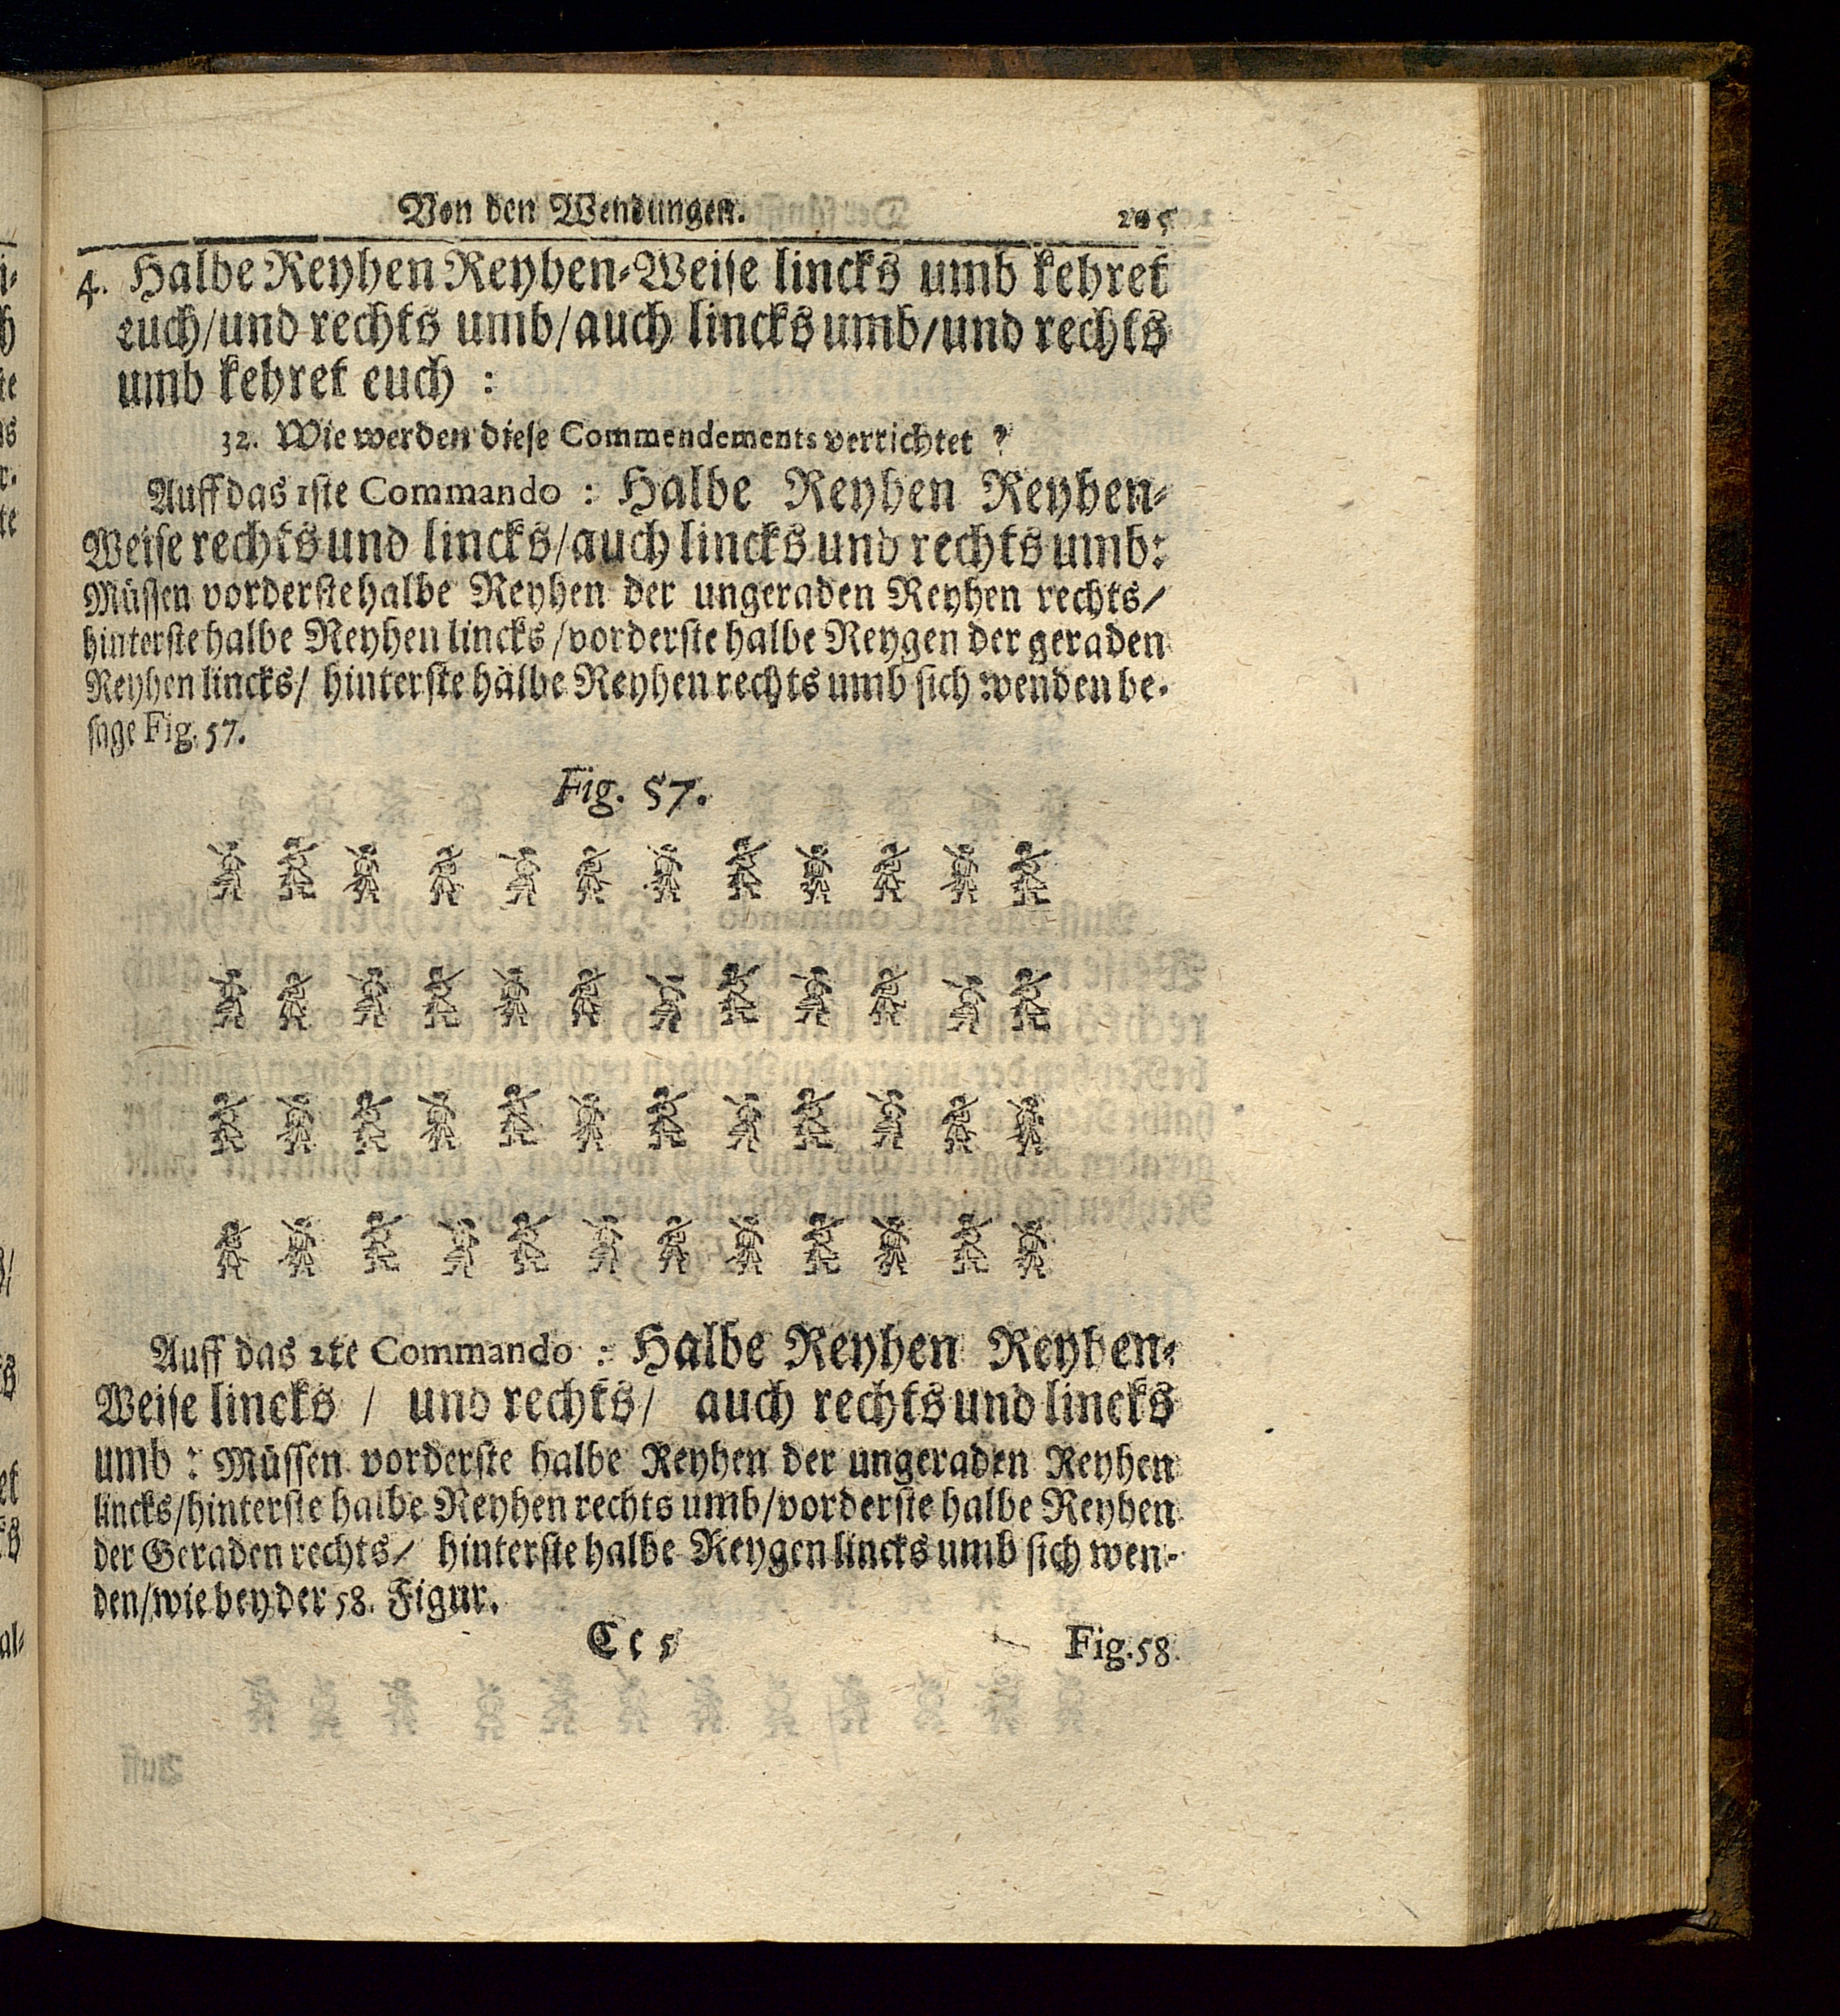 Von den Wendungen. 205
4. Halbe Reyhen Reyhen-Weise lincks umb kehret
euch/und rechts umb/auch lincks umb/und rechts
umb kehret euch :
32. Wie werden diese Commendements verrichtet ?
Auff das 1ste Commando : Halbe Reyhen Reyhen-
Weise rechts und lincks/auch lincks und rechts umb:
Müssen vorderste halbe Reyhen der ungeraden Reyhen rechts/
hinterste halbe Reyhen lincks/vorderste halbe Reygen der geraden
Reyhen lincks/ hinterste halbe Reyhen rechts umb sich wenden be-
sage Fig. 57.
Fig. 57.
Auff das 2te Commando : Halbe Reyhen Reyhen-
Weise lincks / und rechts/ auch rechts und lincks
umb : Müssen vorderste halbe Reyhen der ungeraden Reyhen
lincks/hinterste halbe Reyhen rechts umb/vorderste halbe Reyhen
der Geraden rechts/ hinterste halbe Reygen lincks umb sich wen-
den/wie bey der 58. Figur.
Cc 5 Fig. 58.